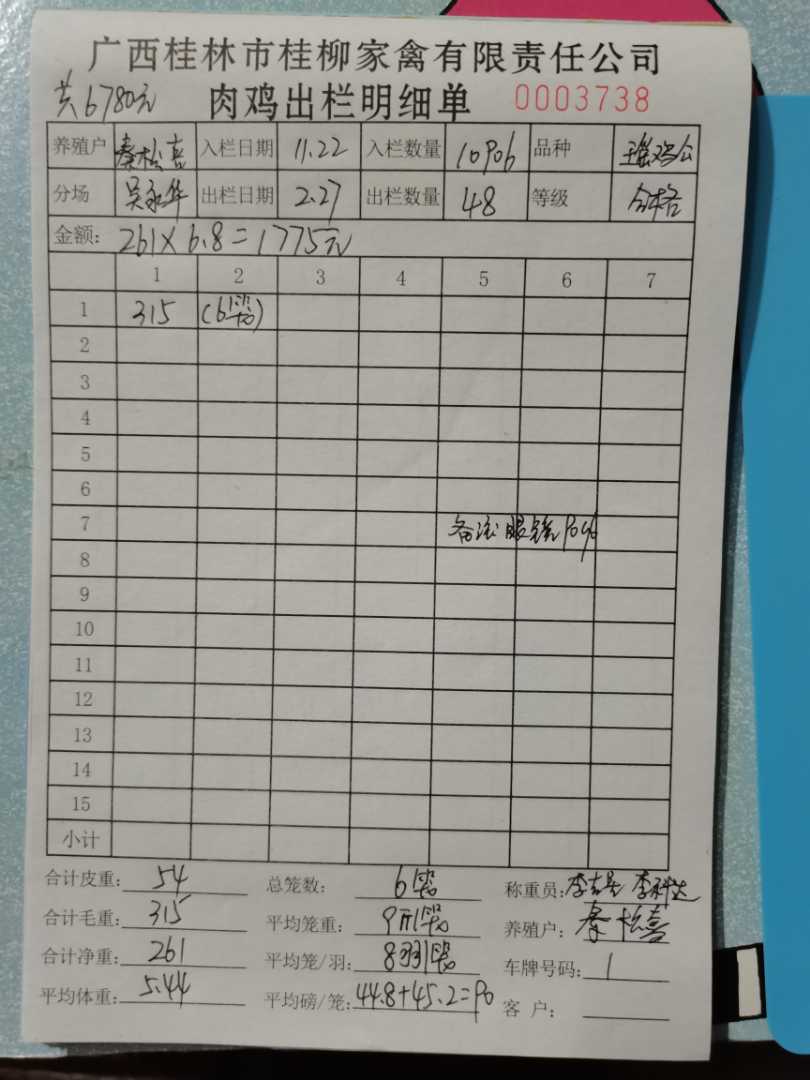 广西桂林市桂柳家禽有限责任公司
共6780元 肉鸡出栏明细单 0003738
养殖户 秦松喜 入栏日期 11.22 入栏数量 10906 品种 瑶鸡公
分场 吴永华 出栏日期 2.27 出栏数量 48 等级 合格
金额: 261×6.8=1775元
1 2 3 4 5 6 7
1 315 (6笼)
2
3
4
5
6
7 备注眼镜90%
8
9
10
11
12
13
14
15
小计
合计皮重: 54 总笼数: 6笼 称重员: 李吉星
合计毛重: 315 平均笼重: 9斤/笼 养殖户: 秦松喜
合计净重: 261 平均笼/羽: 8羽/笼 车牌号码: 1
平均体重: 5.44 平均磅/笼: 44.8+45.2=90 客 户: